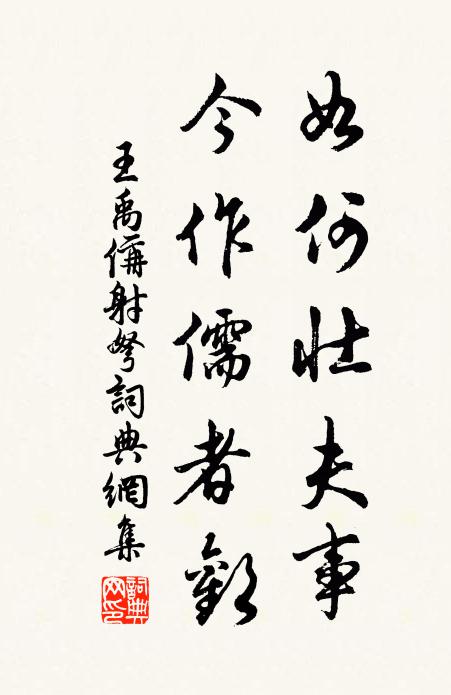 如何壯夫事
今作儒者歡
王禹偁射弩詞典網集
詞典网印